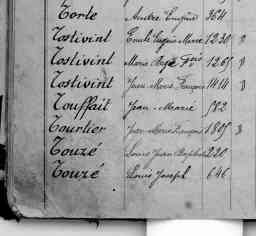 Torte André Eugène 364
Tostivint Emile Eugène Marie 1230 D
Tostivint Marie Ange Fçois 1265 D
Tostivint Jean Marie François 1414 D
Touffait Jean Marie 582
Tourtier Jean Marie François 1805 D
Touzé Louis Jean Baptiste 220
Touzé Louis Joseph 646